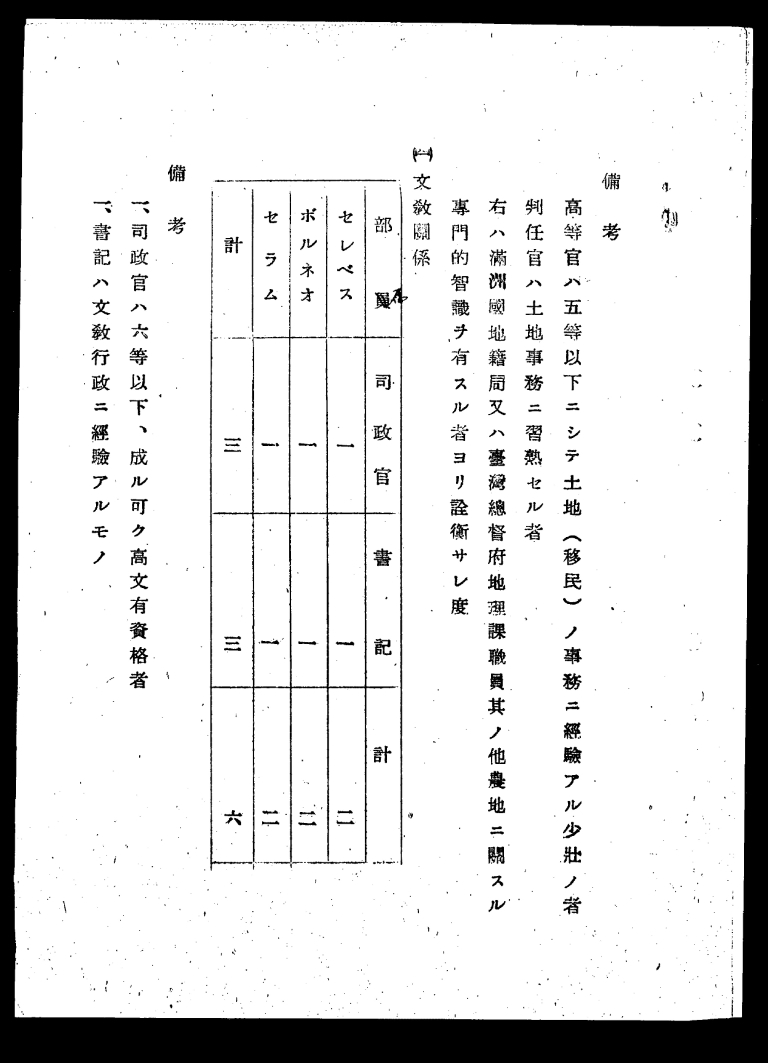 備考
高等官ハ五等以下ニシテ土地（移民）ノ事務ニ經驗アル少壯ノ者
判任官ハ土地事務ニ習熟セル者
右ハ滿洲國地籍局又ハ臺灣總督府地理課職員其ノ他農地ニ關スル
專門的智識ヲ有スル者ヨリ詮衡サレ度
(一)文敎關係
部 司政官 書記 計
セレベス 一 一 二
ボルネオ 一 一 二
セラム 一 一 二
計 三 三 六
備考
一、司政官ハ六等以下、成ル可ク高文有資格者
一、書記ハ文敎行政ニ經驗アルモノ